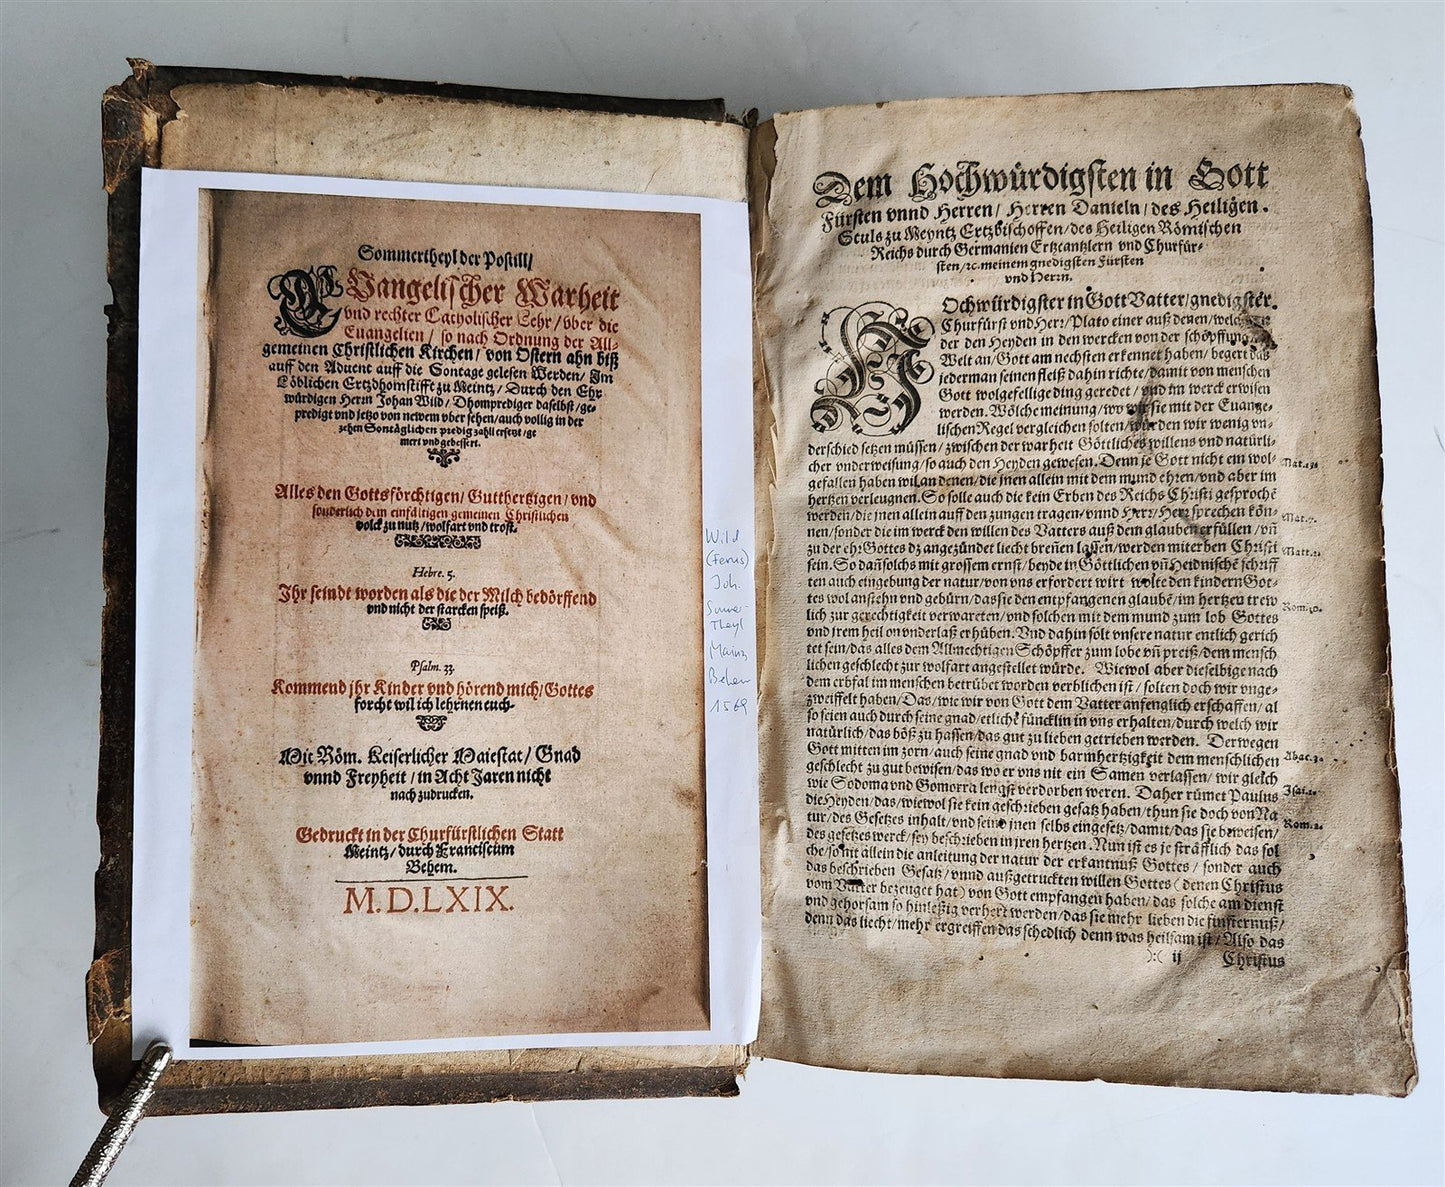 Sommertheyl der Postill/
EVangelischer Warheit
vnd rechter Catholischer Lehr/vber die
Euangelien/so nach Ordnung der All-
gemeinen Christlichen Kirchen/von Ostern ahn biß
auff den Aduent auff die Sontage gelesen Werden/Im
Löblichen Ertzdhomstifft zu Meintz/Durch den Ehr
würdigen Herrn Johan Wild/Dhomprediger daselbst/ge-
predigt vnd jetzo von newem vber sehen/auch vollig in der
zehen Sontäglichen predig zahll ersetzt/ge
mert vnd gebessert.
Alles den Gottsförchtigen/Gutthertzigen/vnd
sonderlich dem einfältigen gemeinen Christlichen
volck zu nutz/wolfart vnd trost.
Hebre. 5.
Ihr seindt worden als die der Milch bedörffend
vnd nicht der starcken speiß.
Psalm. 33.
Kommend jhr Kinder vnd hörend mich/Gottes
forcht wil ich lehrnen euch.
Mit Röm. Keiserlicher Maiestat/Gnad
vnnd Freyheit/in Acht Jaren nicht
nach zudrucken.
Gedruckt in der Churfürstlichen Statt
Meintz/durch Franciscum
Behem.
M.D.LXIX.
Wild
(Ferus)
Joh.
Theyl
Mainz
Behem
1569
Dem Hochwürdigsten in Gott
Fürsten vnnd Herren/Herren Danieln/des Heiligen
Stuls zu Meyntz Ertzbischoffen/des Heiligen Römischen
Reichs durch Germanien Ertzcantzlern vnd Churfür-
sten/ꝛc. meinem gnedigsten Fürsten
vnd Herrn.
HOchwürdigster in Gott Vatter/gnedigster
Churfürst vnd Herr/Plato einer auß denen/welche
der den Heyden in den wercken von der schöpffung
Welt an/Gott am nechsten erkennet haben/begert das
jederman seinen fleiß dahin richte/damit von menschen
Gott wolgefellige ding geredet/vnd im werck erwisen
werden. Wölche meinung/wo wir sie mit der Euange-
lischen Regel vergleichen solten/würden wir wenig vn-
derschied setzen müssen/zwischen der warheit Göttliches willens vnd natürli-
cher vnderweisung/so auch den Heyden gewesen. Denn je Gott nicht ein wol-
gefallen haben wil an denen/die jnen allein mit dem mund ehren/vnd aber im
hertzen verleugnen. So solle auch die kein Erben des Reichs Christi gesprochē
werden/die jnen allein auff den zungen tragen/vnnd Herr/Herr sprechen kön-
nen/sonder die im werck den willen des Vatters auß dem glauben erfüllen/vn̄
zu der ehr Gottes dz angezündet liecht breñen lassen/werden miterben Christi
sein. So dañ solchs mit grossem ernst/beyde in Göttlichen vñ Heidnischē schriff
ten auch eingebung der natur/von vns erfordert wirt/wolte den kindern Got-
tes wol anstehn vnd gebürn/das sie den entpfangenen glaubē/im hertzen trew
lich zur gerechtigkeit verwareten/vnd solchen mit dem mund zum lob Gottes
vnd jrem heil on vnderlaß erhüben. Vnd dahin sölt vnsere natur entlich gerich
tet sein/das alles dem Allmechtigen Schöpffer zum lobe vñ preiß/dem mensch
lichen geschlecht zur wolfart angestellet würde. Wiewol aber dieselbige nach
dem erbfal im menschen betrübet worden verblichen ist/solten doch wir vnge-
zweiffelt haben/Das/wie wir von Gott dem Vatter anfenglich erschaffen/al
so seien auch durch seine gnad/etlichē füncklin in vns erhalten/durch welch wir
natürlich/das böß zu hassen/das gut zu lieben getrieben werden. Derwegen
Gott mitten im zorn/auch seine gnad vnd barmhertzigkeit dem menschlichen
geschlecht zu gut bewisen/das wo er vns nit ein Samen verlassen/wir gleich
wie Sodoma vnd Gomorra lengst verdorben weren. Daher rümet Paulus
die Heyden/das/wiewol sie kein geschrieben gesatz haben/thun sie doch von Na
tur/des Gesetzes inhalt/vnd seind jnen selbs ein gesetz/damit/das sie beweisen/
des gesetzes werck/sey beschrieben in jren hertzen. Nun ist es je sträfflich das sol
che/so nit allein die anleitung der natur der erkantnuß Gottes/sonder auch
das beschrieben Gesatz/vnnd außgetruckten willen Gottes (denen Christus
vom Vatter bezeuget hat) von Gott empfangen haben/das solche am dienst
vnd gehorsam so hinleßig verhert werden/das sie mehr lieben die finsternuß/
denn das liecht/mehr ergreiffen das schedlich denn was heilsam ist/Also das
):( ij Christus
Mat.15.
Mat.7.
Matt.5.
Rom.10.
Abac.3.
Isai.1.
Rom.2.